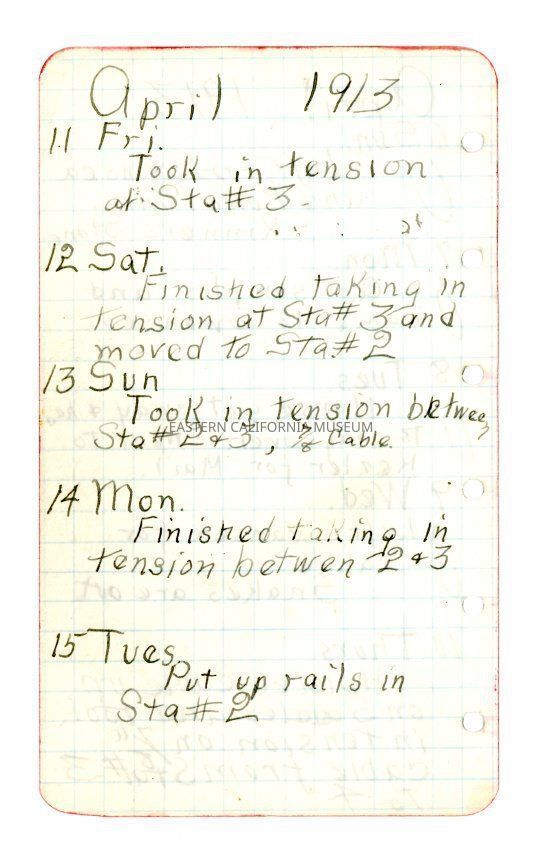 April 1913
11 Fri.
Took in tension
at Sta# 3.
12 Sat.
Finished taking in
tension at Sta# 3 and
moved to Sta# 2
13 Sun
Took in tension between
EASTERN CALIFORNIA MUSEUM
Sta# 2 & 3, 7/8 Cable.
14 Mon.
Finished taking in
tension betwen 2 & 3
15 Tues
Put up rails in
Sta# 2